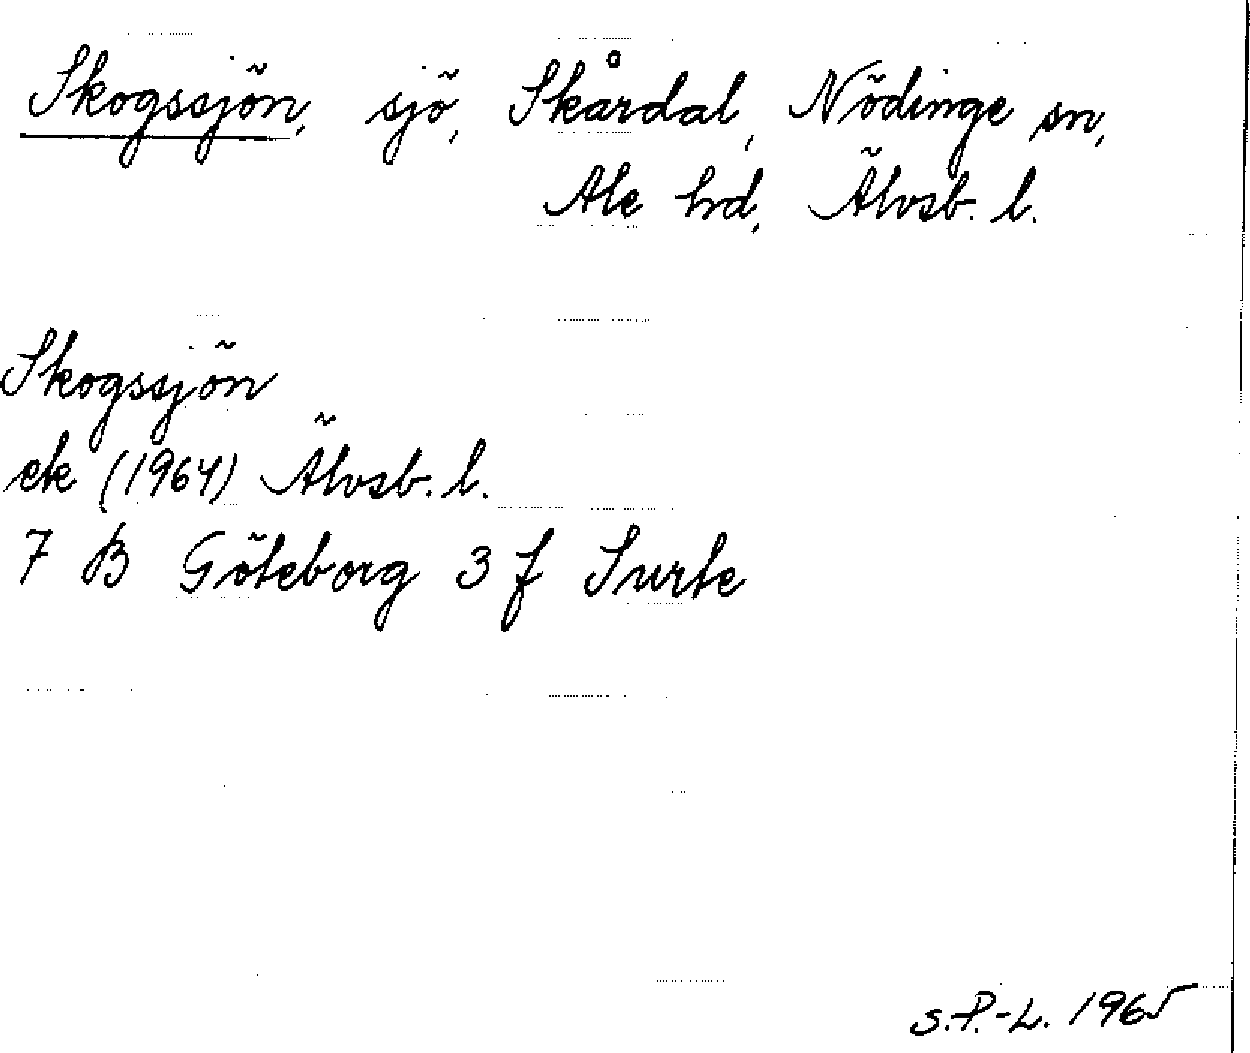 Skogssjön, sjö, Skårdal, Nödinge sn,
Ale hd, Älvsb. l.
Skogssjön
ek (1964) Älvsb. l.
7 B Göteborg 3 f Surte
S.P.-L. 1965